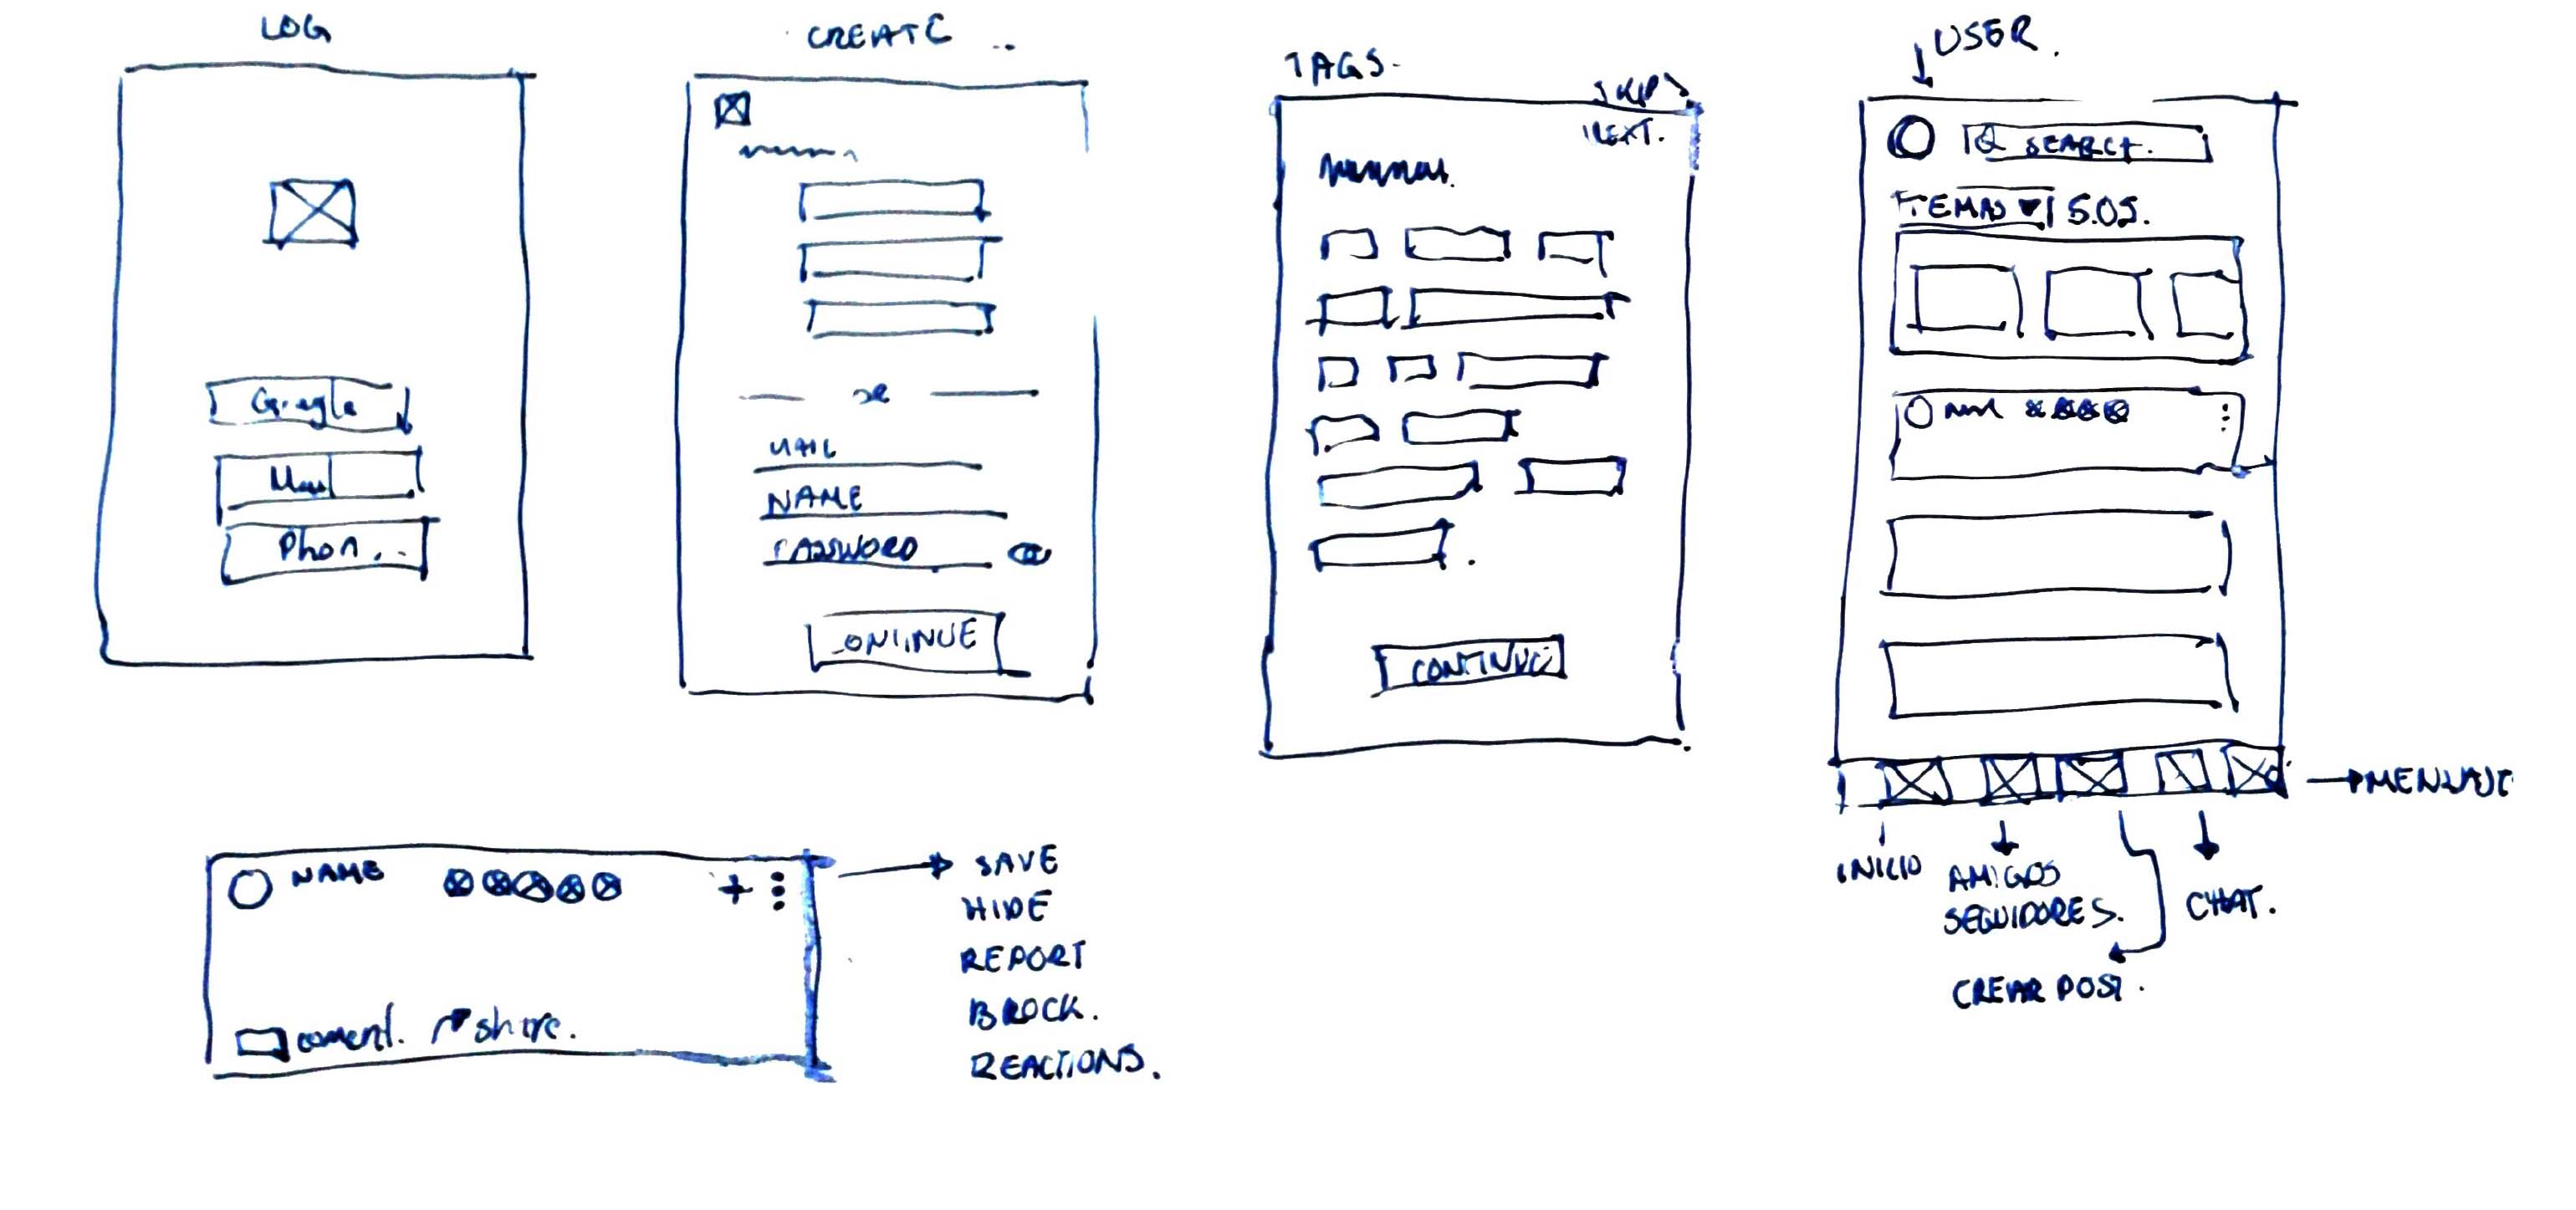 LOG
Google
Phon...
CREATE ..
OR
MAIL
NAME
PASSWORD
CONTINUE
TAGS.
SKIP >
NEXT.
CONTINUE
USER.
SEARCH.
TEMAS ▼ S.O.S.
INICIO
AMIGOS
SEGUIDORES.
CREAR POST.
CHAT.
NAME + ⋮
coment. share.
SAVE
HIDE
REPORT
BROCK.
REACTIONS.